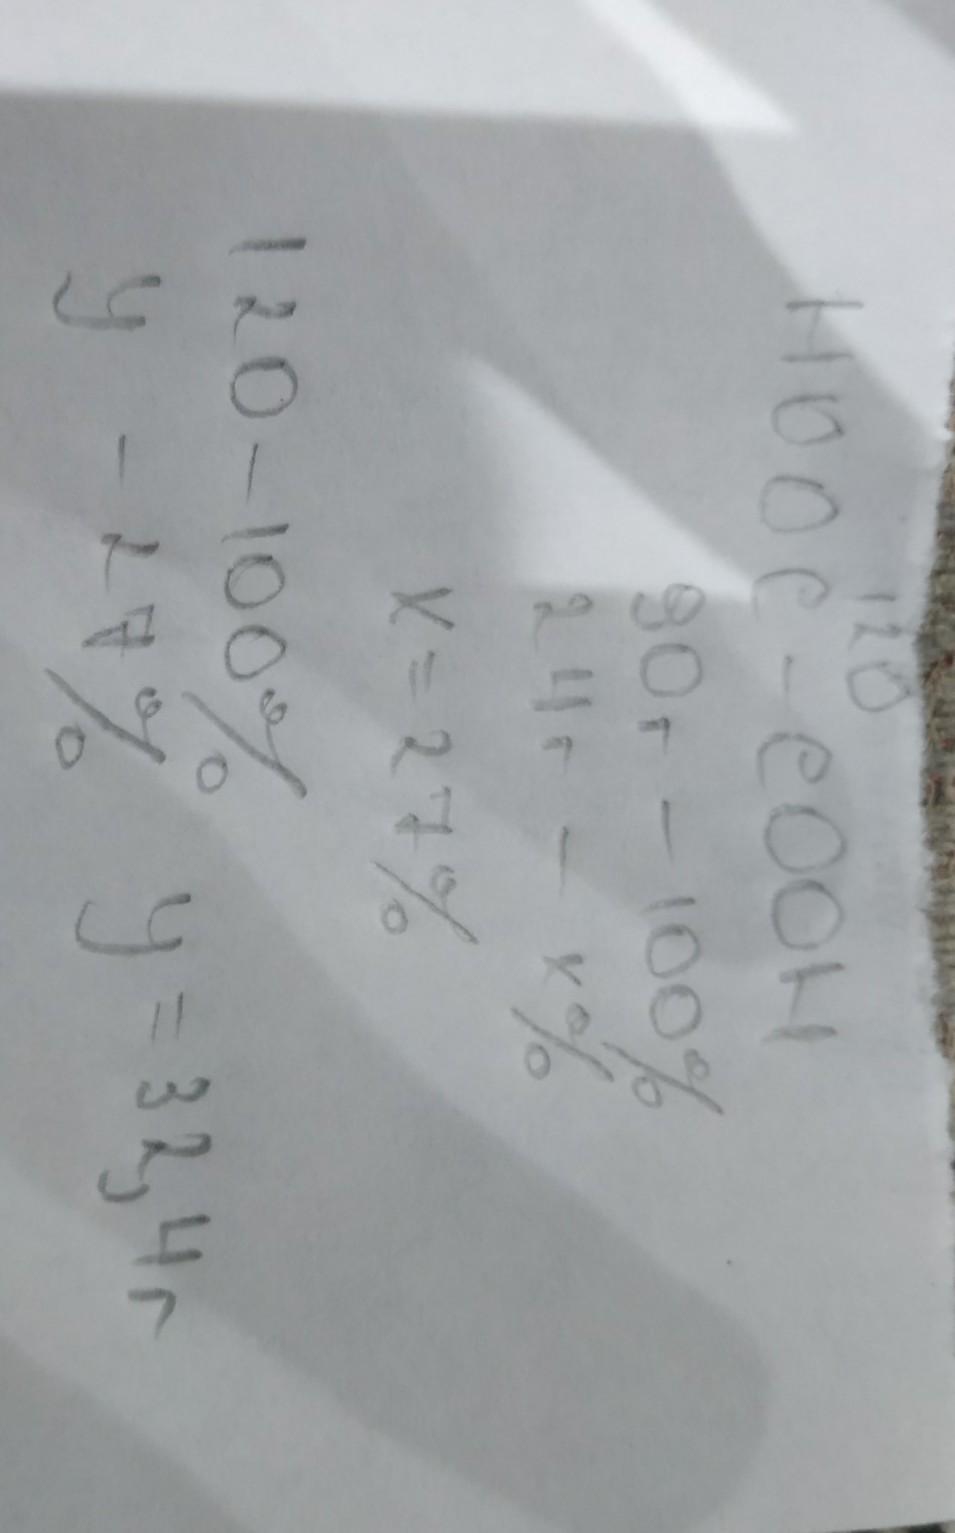 120
HOOC-COOH
90г - 100%
24г - x%
x = 27%
120 - 100%
y - 27%   y = 32,4г